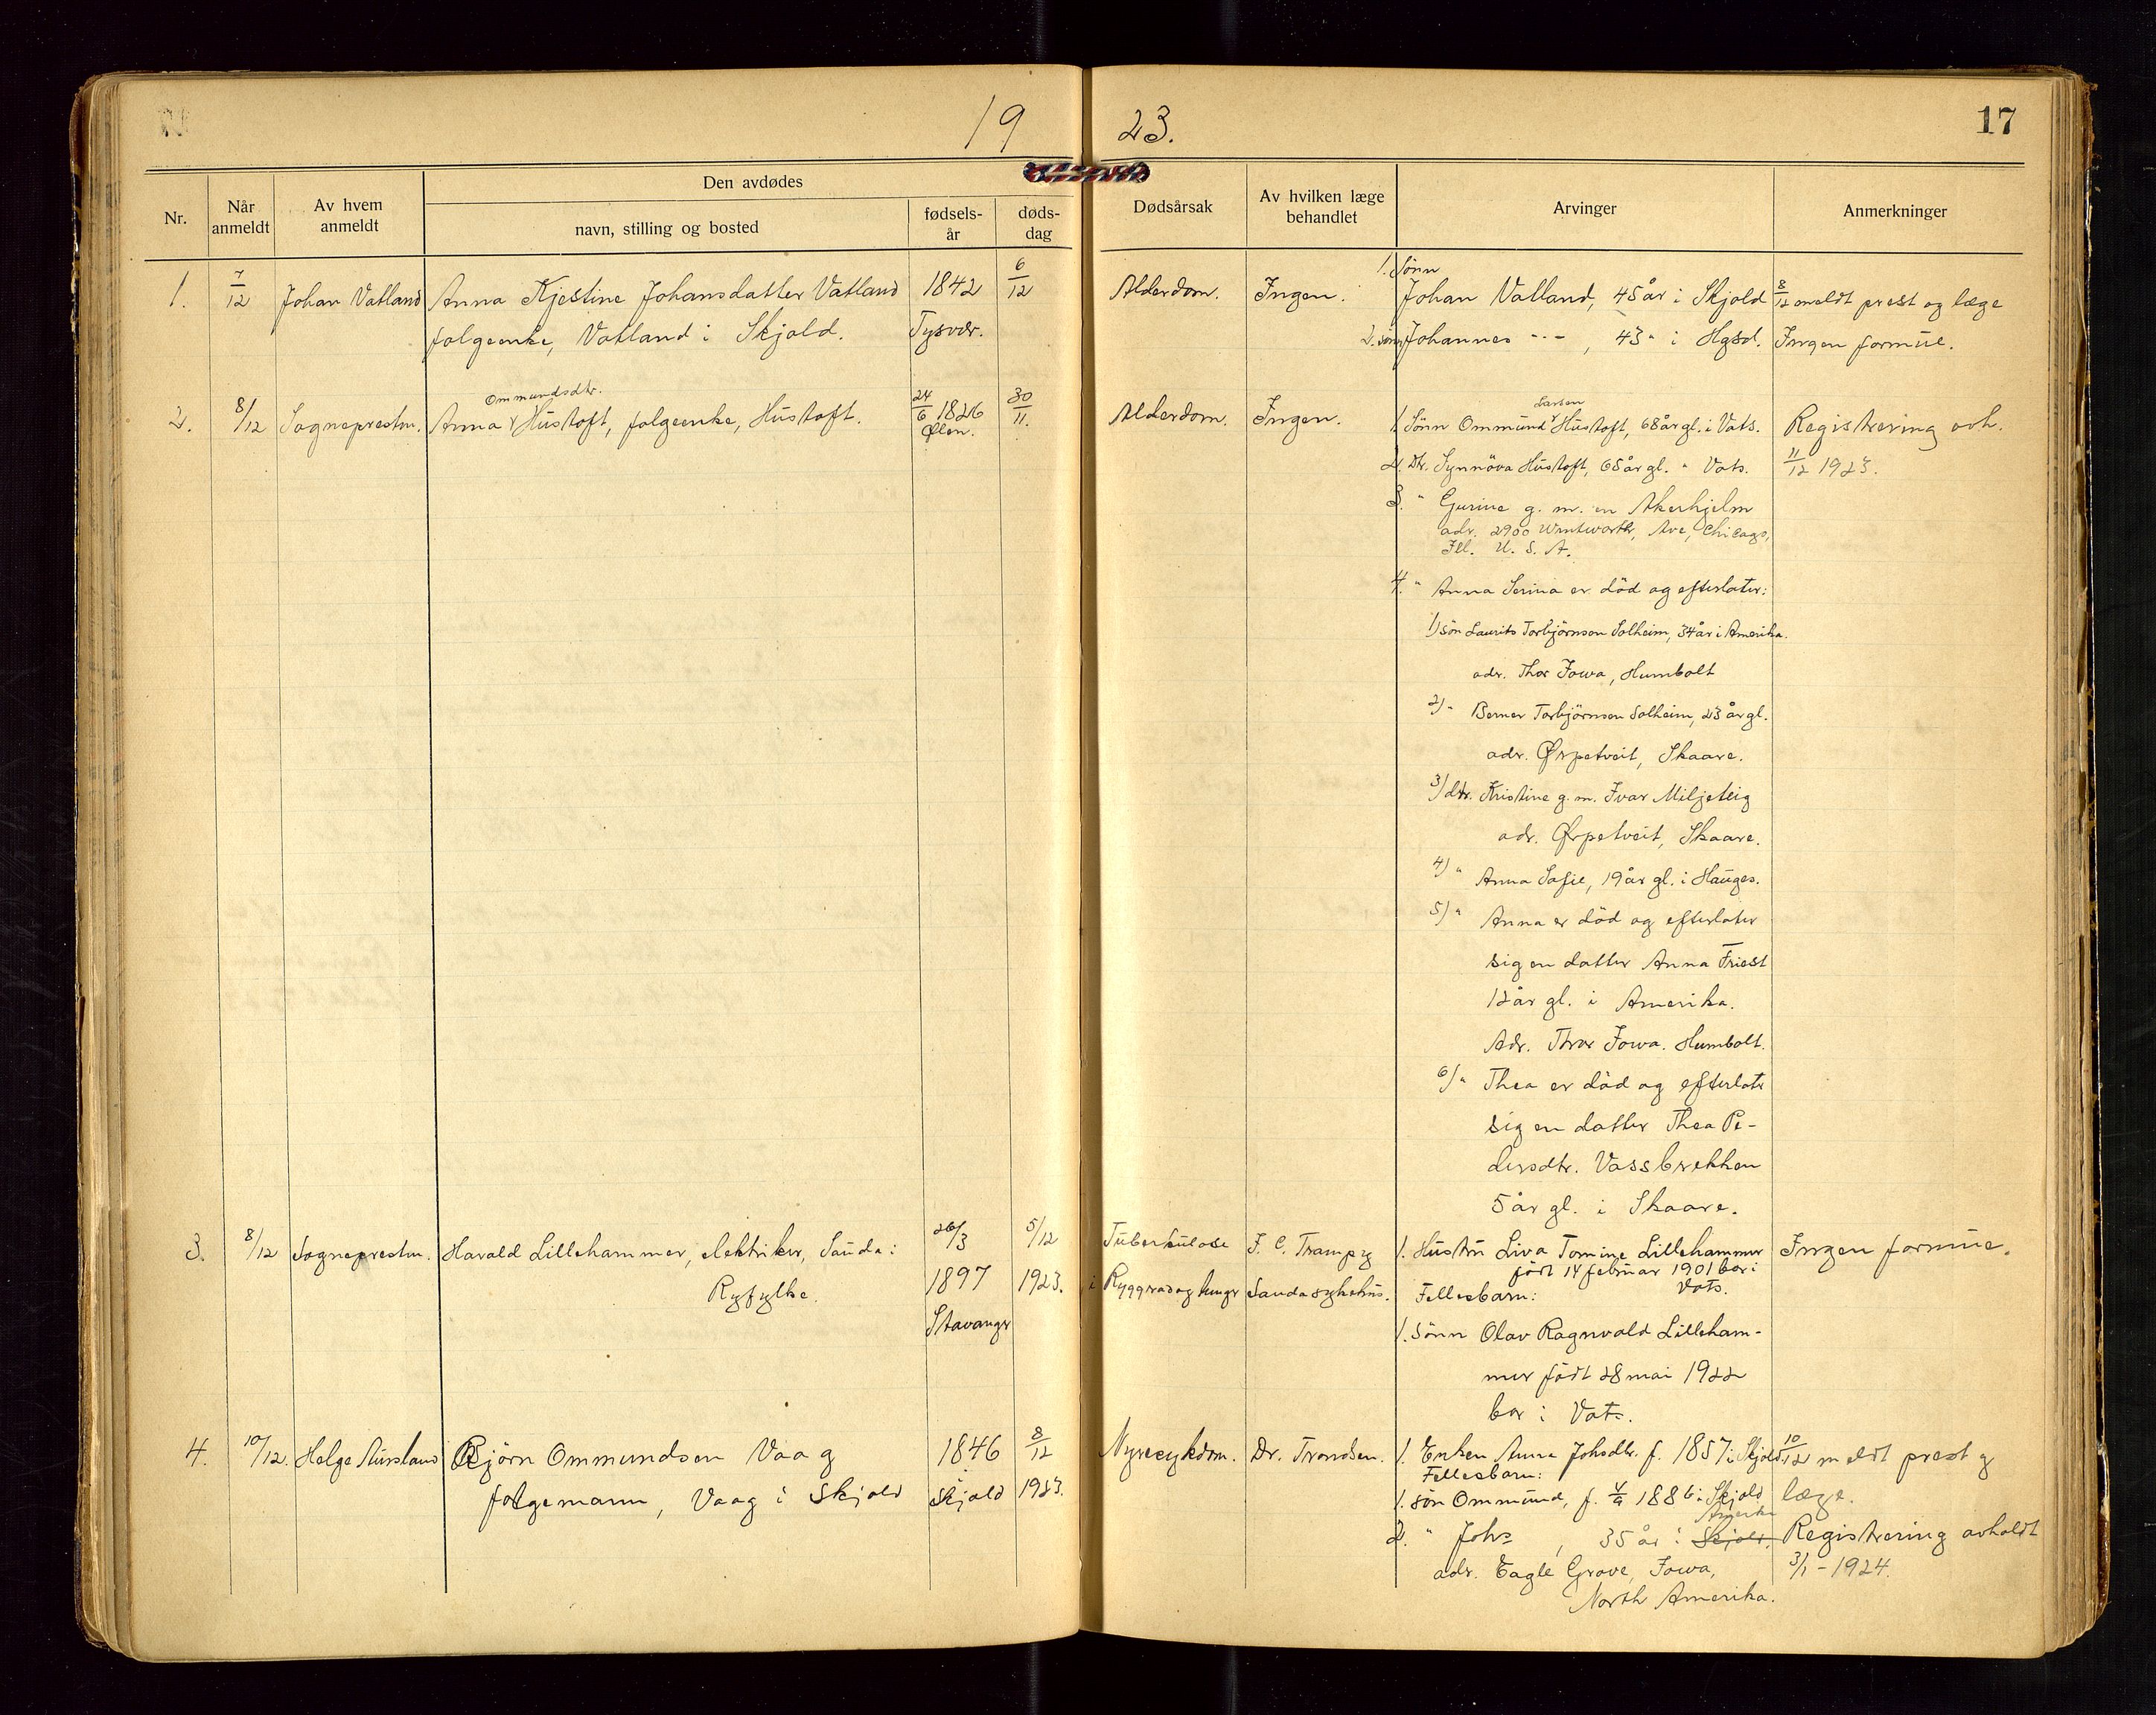 19 23.
17
Nr.
Når anmeldt
Av hvem anmeldt
Den avdødes
navn, stilling og bosted
fødselsår
dødsdag
Dødsårsak
Av hvilken læge behandlet
Arvinger
Anmerkninger
1. 7/12 Johan Vatland Anna Kjestine Johansdatter Vatland 1842 6/12 Alderdom. Ingen.
folgeenke, Vatland i Skjold. Tysvær.
1. Sønn
Johan Vatland, 45 år i Skjold 8/12 meldt prest og læge
2. sønn Johannes -"- , 43 " i Hgsd. Ingen formue.
Ommundsdtr.
2. 8/12 Sogneprestn. Anna Hustoft, folgeenke, Hustoft. 24/6 1826 30/11. Alderdom. Ingen.
Ølen.
Larsen
1. Sønn Ommund Hustoft, 68 år gl. i Vats. Registrering avh.
2. Dtr. Synnöva Hustoft, 65 år gl. " Vats. 11/12 1923.
3. " Gurine g. m. en Akerhjelm
adr. 2900 Wentworth, Ave, Chicago,
Ill. U. S. A.
4. " Anna Serina er död og efterlater:
1) sön Laurits Torbjörnson Solheim, 34 år i Amerika.
adr. Thor Iowa, Humbolt
2) " Berner Torbjörnsen Solheim, 23 år gl.
adr. Ørpetveit, Skaare.
3) dtr. Kristine g. m. Ivar Miljeteig
adr. Ørpetveit, Skaare.
4) " Anna Sofie, 19 år gl. i Hauges.
5) " Anna er död og efterlater
sig en datter Anna Friest
12 år gl. i Amerika.
Adr. Thor Iowa. Humbolt.
6) " Thea er död og efterlater
sig en datter Thea Pe-
dersdtr. Vassbrekken
5 år gl. i Skaare.
3. 8/12 Sogneprestn. Harald Lillehammer, elektriker, Sauda i 26/3 5/12 Tuberkulose F. C. Trampy
Ryfylke. 1897 1923. i Ryggrad og lunger Sauda sykehus.
Stavanger
1. Hustru Liva Tomine Lillehammer Ingen formue.
födt 14 februar 1901 bor i
Vats.
Fellesbarn:
1. Sönn Olav Ragnvald Lilleham-
mer födt 28 mai 1922
bor i Vats.
4. 10/12. Helge Aursland Björn Ommundsen Vaag 1846 8/12 Nyresykdom. Dr. Trondsen.
folgemann, Vaag i Skjold Skjold 1923.
1. Enken Anna Johsdtr. f. 1857 i Skjold 10/12 meldt prest og
Fellesbarn:
1. sön Ommund, f. 4/9 1886 i Skjold læge.
Amerika
2. " Johs , 35 år i Skjold. Registrering avholdt
adr. Eagle Grove, Iowa, 3/1 - 1924.
North Amerika.